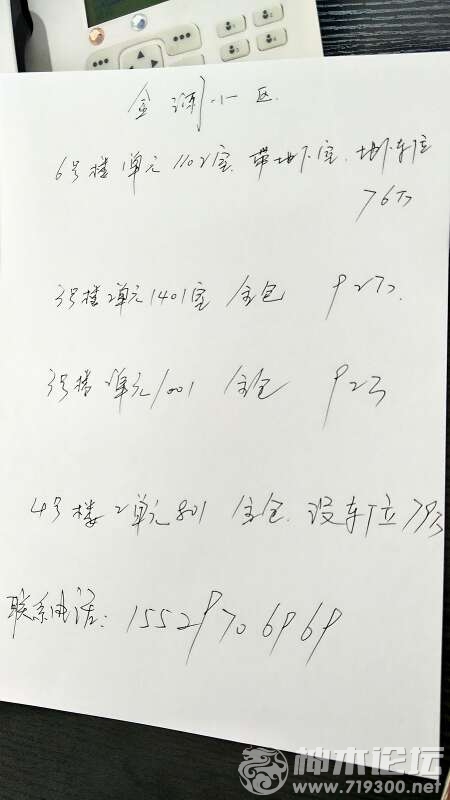 金河小区
6号楼1单元1102室. 带地下室. 地下车位
76万
3号楼2单元1401室 全包 92万.
3号楼 单元1001 全包 92万
4号楼2单元801 全包. 没车位 79万
联系电话: 15529706969
神木论坛
www.719300.net